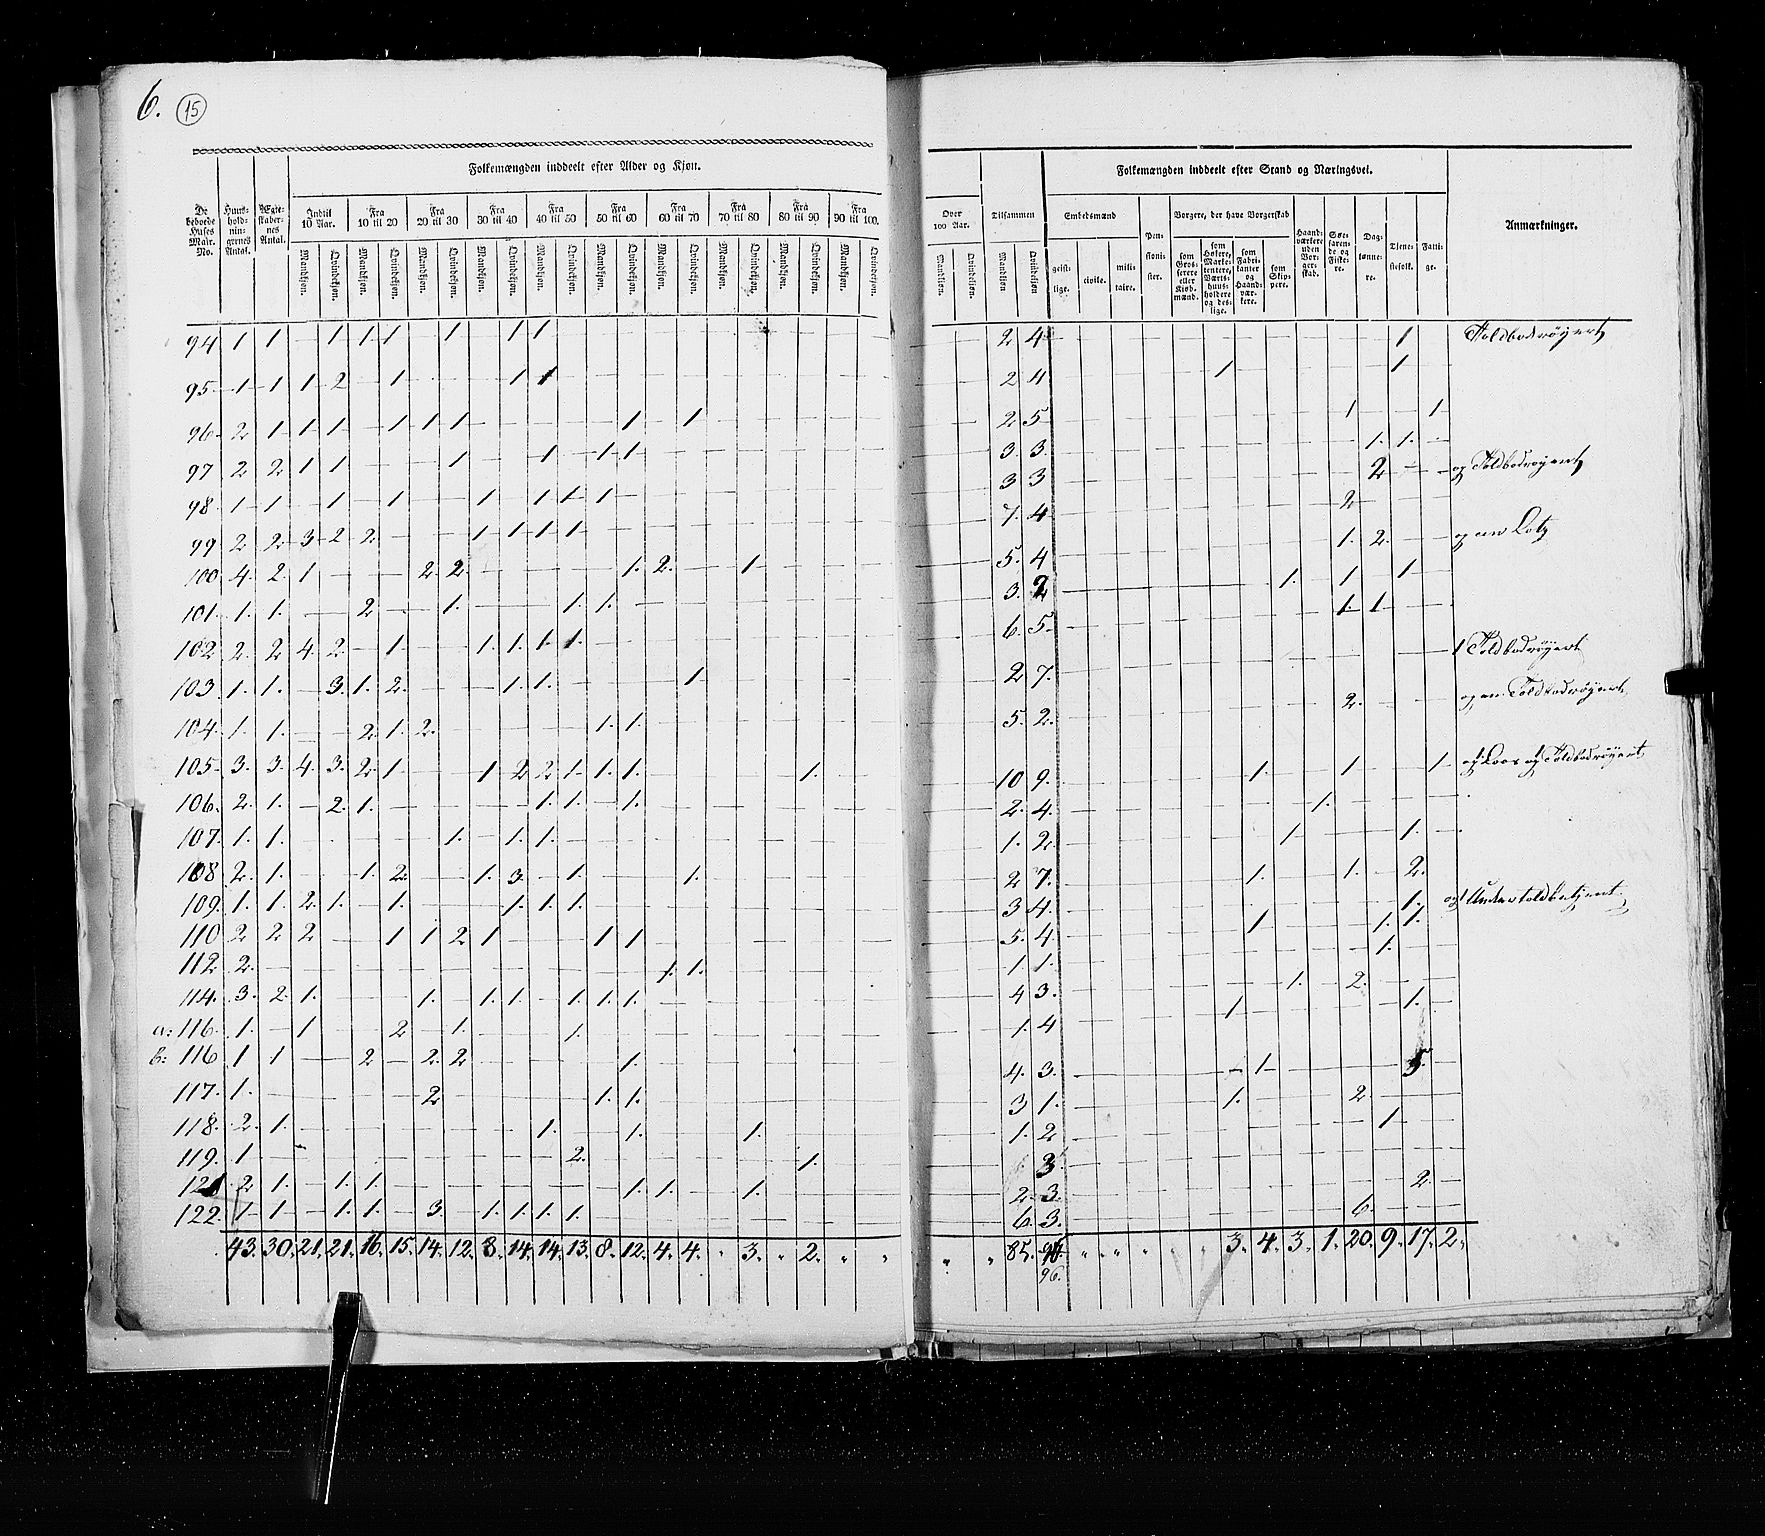 6. 15
Folkemængden inddeelt efter Alder og Kjøn.
De beboede Huses Matr. No. Huus-hold-nin-gernes Antal. Ægte-skaber-nes Antal.
Indtil 10 Aar. Fra 10 til 20 Fra 20 til 30 Fra 30 til 40 Fra 40 til 50 Fra 50 til 60 Fra 60 til 70 Fra 70 til 80 Fra 80 til 90 Fra 90 til 100.
Mandkjøn. Qvindekjøn. Mandkjøn. Qvindekjøn. Mandkjøn. Qvindekjøn. Mandkjøn. Qvindekjøn. Mandkjøn. Qvindekjøn. Mandkjøn. Qvindekjøn. Mandkjøn. Qvindekjøn. Mandkjøn. Qvindekjøn. Mandkjøn. Qvindekjøn. Mandkjøn. Qvindekjøn.
94 1 1 – 1 1 1 – 1 – 1 1
95 1 1 1 2 – 1 – – – 1 1
96 2 1 1 1 – 1 1 1 – – – – – 1 – 1
97 2 2 1 1 – – – 1 – – 1 – 1 1
98 1 1 – 1 – 1 – – 1 – 1 1 1
99 2 2 3 2 2 – – – 1 1 1 1
100 4 2 1 – – – 2 2 – – – – – 1 2 – – 1
101 1 1 – – 2 – – 1 – – – 1 1
102 2 2 4 2 – 1 – – 1 1 1 1
103 1 1 – 3 1 2 – – – 1 1 – – – – 1
104 1 1 – – 2 1 2 – – – – – 1 1
105 3 3 4 3 2 1 – – 1 2 2 1 1 1 – – – – – 1
106 2 1 – 2 1 – – – – – 1 1 – 1
107 1 1 – – – – – 1 – 1 1
108 2 1 – – 1 2 – – 1 3 – 1 – – – 1
109 1 1 2 1 – 1 – – – 1 1 1
110 2 2 2 – – 1 1 2 1 – – – 1 1
112 2 – – – – – – – – – – – – – 1 1
114 3 2 1 – – – 1 – 1 1 – 1 1 1
a: 116 1 – 1 – – 2 – 1 – – – 1
b: 116 1 1 – – 2 – 2 2 – – – – – 1
117 1 – – – – – 2 – – – – – 1 1
118 2 1 – – – – – – – – 1 – – 1 – – – 1
119 1 – – – – – – – – – – 2 – – – – – – – 1
121 2 1 – 1 1 – – – – – – – – 1 1 – – 1
122 1 1 – 1 1 – 3 – 1 1 1 1
43. 30. 21. 21. 16. 15. 14. 12. 8. 14. 14. 13. 8. 12. 4. 4. " 3. " 2. " "
Over 100 Aar. Tilsammen
Mandkjøn Qvindekjøn Mandkjøn Qvindekjøn
Folkemængden inddeelt efter Stand og Næringsvei.
Embedsmænd geist-lige. civile. mili-taire. Pen-sioni-ster.
Borgere, der have Borgerskab som Gros-serere eller Kjøb-mænd. som Høkere, Marke-tentere, Værts-huus-holdere og des-lige. som Fabri-kanter og Haand-vær-kere. som Skip-pere.
Haand-værkere uden Bor-ger-skab. Søe-faren-de og Fiske-re. Dag-lønne-re. Tiene-stefolk. Fatti-ge.
Anmærkninger.
2 4 1 Toldbodrøyert
2 4 1 1
2 5 1 1
3 3 1. 1.
3 3 2 og Toldbodrøyert
7. 4 2
5. 4 1. 2. og een Lots
3. 2 1. 1 1
6. 5. 1. 1
2 7. 1 Toldbodrøyert
5. 2. 2. og en Toldbodrøyert
10 9. 1. 1 1 og 1 Loos og 1 Toldbodrøyert
2. 4. 1.
1. 2. 1 1.
2 7. 1. 1. 2.
3 4. 1. og 1 Undertoldbetjent
5. 4. 1 1. 1.
1 1. 1.
4 3. 1. 2.
1. 4 1 1.
4. 3. 1 5.
3 1. 1. 2
1. 2 1
3
2. 3. 2.
6. 3. 6.
" " 85. " " " " " " 3. 4. 3. 1. 20. 9. 17. 2.
96.